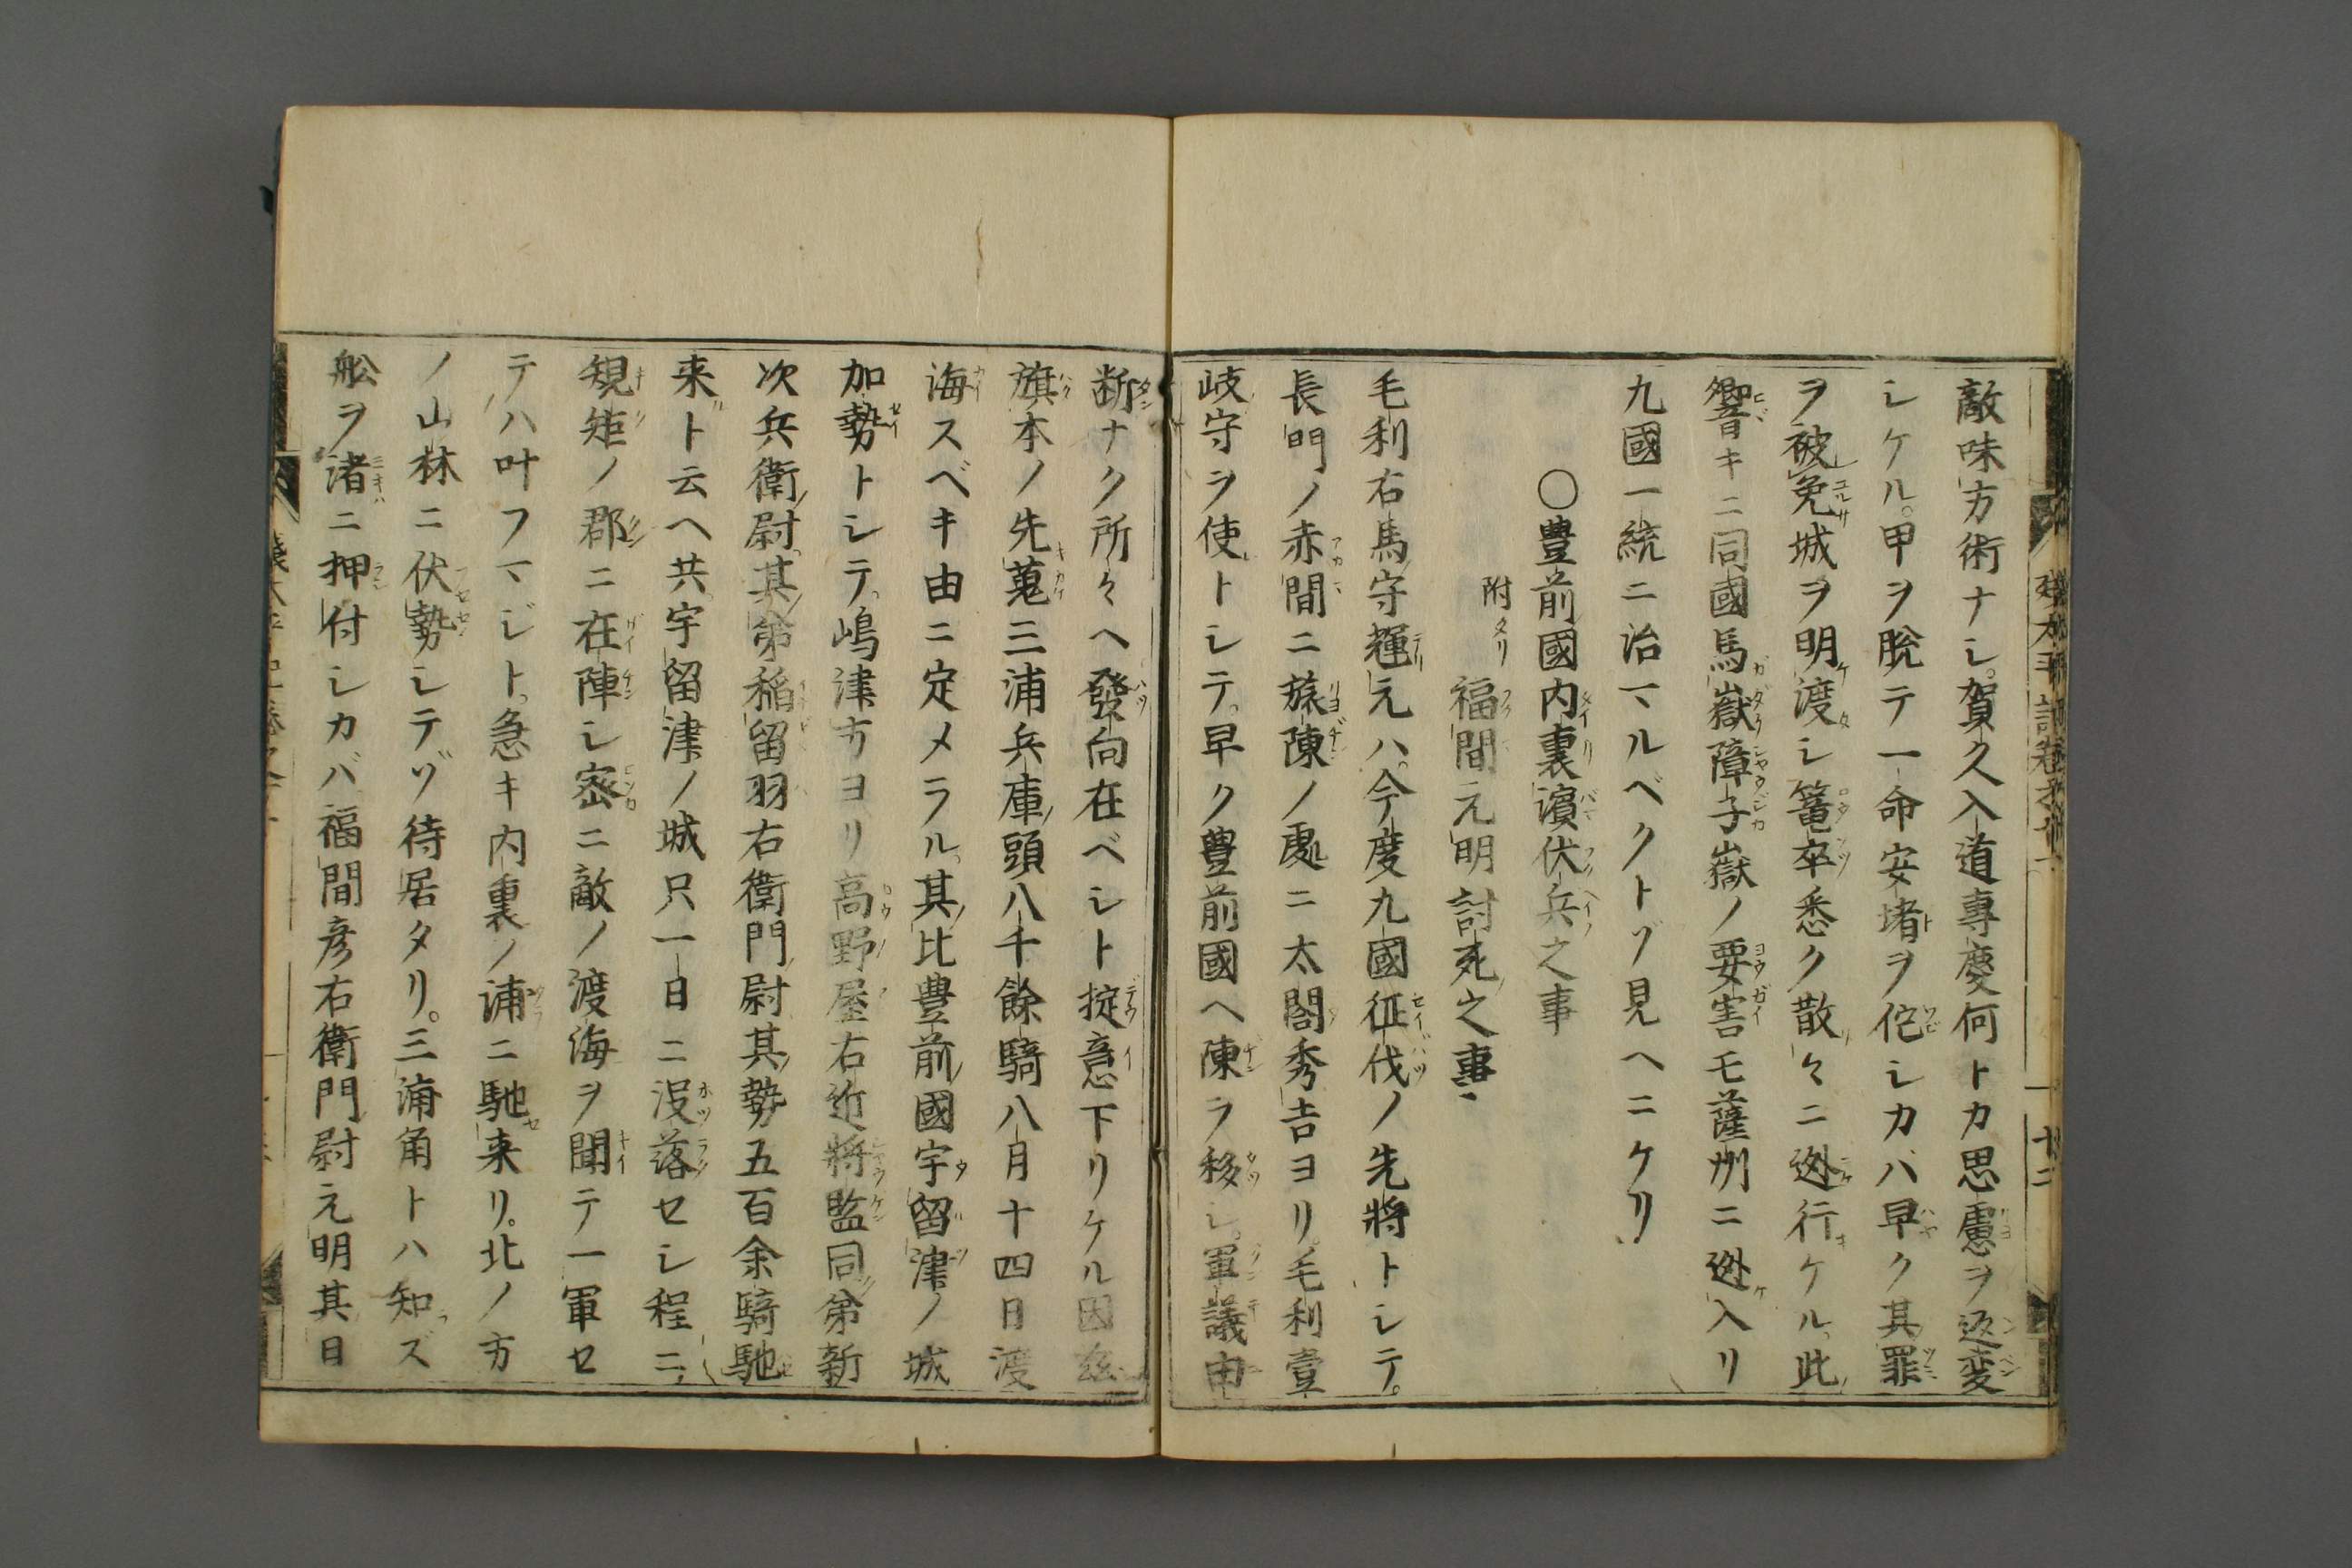 敵味方術ナシ。賀久入道專慶何トカ思慮ヲ返変
シケル。甲ヲ脱テ一命安堵ヲ佗シカバ早ク其罪
ヲ被免城ヲ明渡シ篭卒悉ク散々ニ迯行ケル。此
響キニ同國馬嶽障子嶽ノ要害モ薩州ニ迯入リ
九國一統ニ治マルベクトゾ見ヘニケリ
〇豊前國内裏濵伏兵之事
附タリ 福間元明討死之事
毛利右馬守輝元ハ。今度九國征伐ノ先將トシテ。
長門ノ赤間ニ旅陳ノ處ニ太閤秀吉ヨリ。毛利壹
岐守ヲ使トシテ。早ク豊前國ヘ陳ヲ移シ。軍議由
断ナク所々ヘ發向在ベシト掟意下リケル因茲
旗本ノ先蒐三浦兵庫頭八千餘騎八月十四日渡
海スベキ由ニ定メラル。其比豊前國宇留津ノ城
加勢トシテ。嶋津方ヨリ高野屋右近將監同弟新
次兵衛尉其弟稲留羽右衛門尉其勢五百余騎馳
来ト云ヘ共。宇留津ノ城只一日ニ没落セシ程ニ
規矩ノ郡ニ在陣シ密ニ敵ノ渡海ヲ聞テ一軍セ
テハ叶フマジト。急キ内裏ノ浦ニ馳来リ。北ノ方
ノ山林ニ伏勢シテゾ待居タリ。三浦角トハ知ズ
舩ヲ渚ニ押付シカバ福間彦右衛門尉元明其日